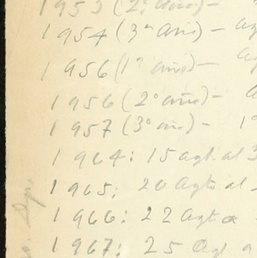 1953 (2º año) -
1954 (3er año) -
1956 (1er año) -
1956 (2º año) -
1957 (3º año) - 1º
1964: 15 agt. al 3
1965: 20 agto al -
1966: 22 Agto a
1967: 25 Ag a